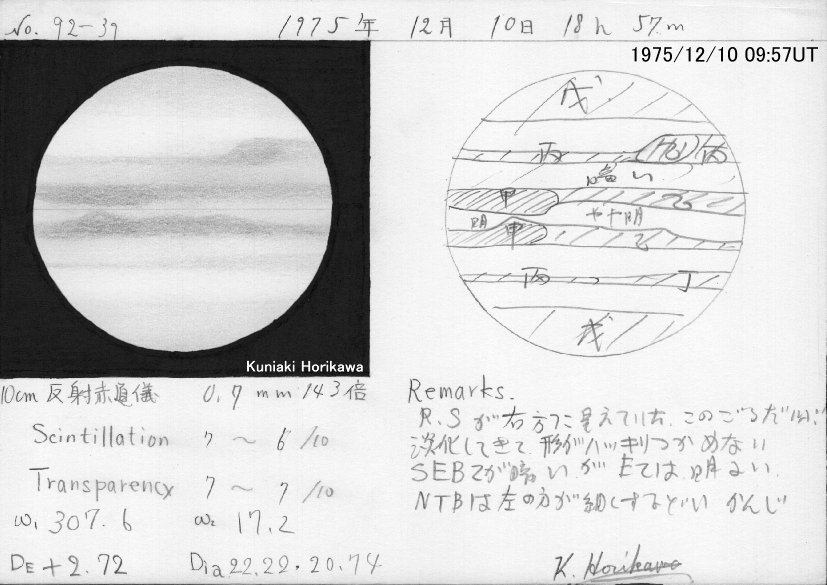 No. 92-39 1975年 12月 10日 18h 57m
1975/12/10 09:57UT
戊
丙 丙
暗い
甲 乙
明 やや明
甲 乙
丙 丁
戊
Kuniaki Horikawa
10cm 反射赤道儀 0.7mm 143倍
Scintillation 7～6/10
Transparency 7～7/10
ω₁ 307.6 ω₂ 17.2
DE +2.72 Dia 22.22, 20.74
Remarks.
R.S が右方に見えている. このごろだいぶ
淡化してきて, 形がハッキリつかめない
SEBZが暗いが EZは 明るい.
NTBは左の方が細くするどい かんじ
K. Horikawa